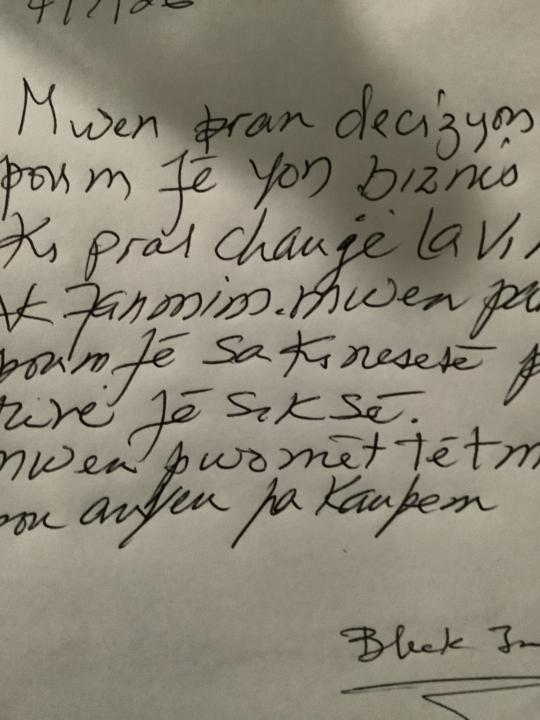 Mwen pran decizyon
poum fè yon biznis
Ki pral changé La Vi
Ak fanmim. mwen
poum fè sa Ki nesesè
rivé fè siksè.
mwen pwomèt tèt m
pou anyen pa Kanpem
Black